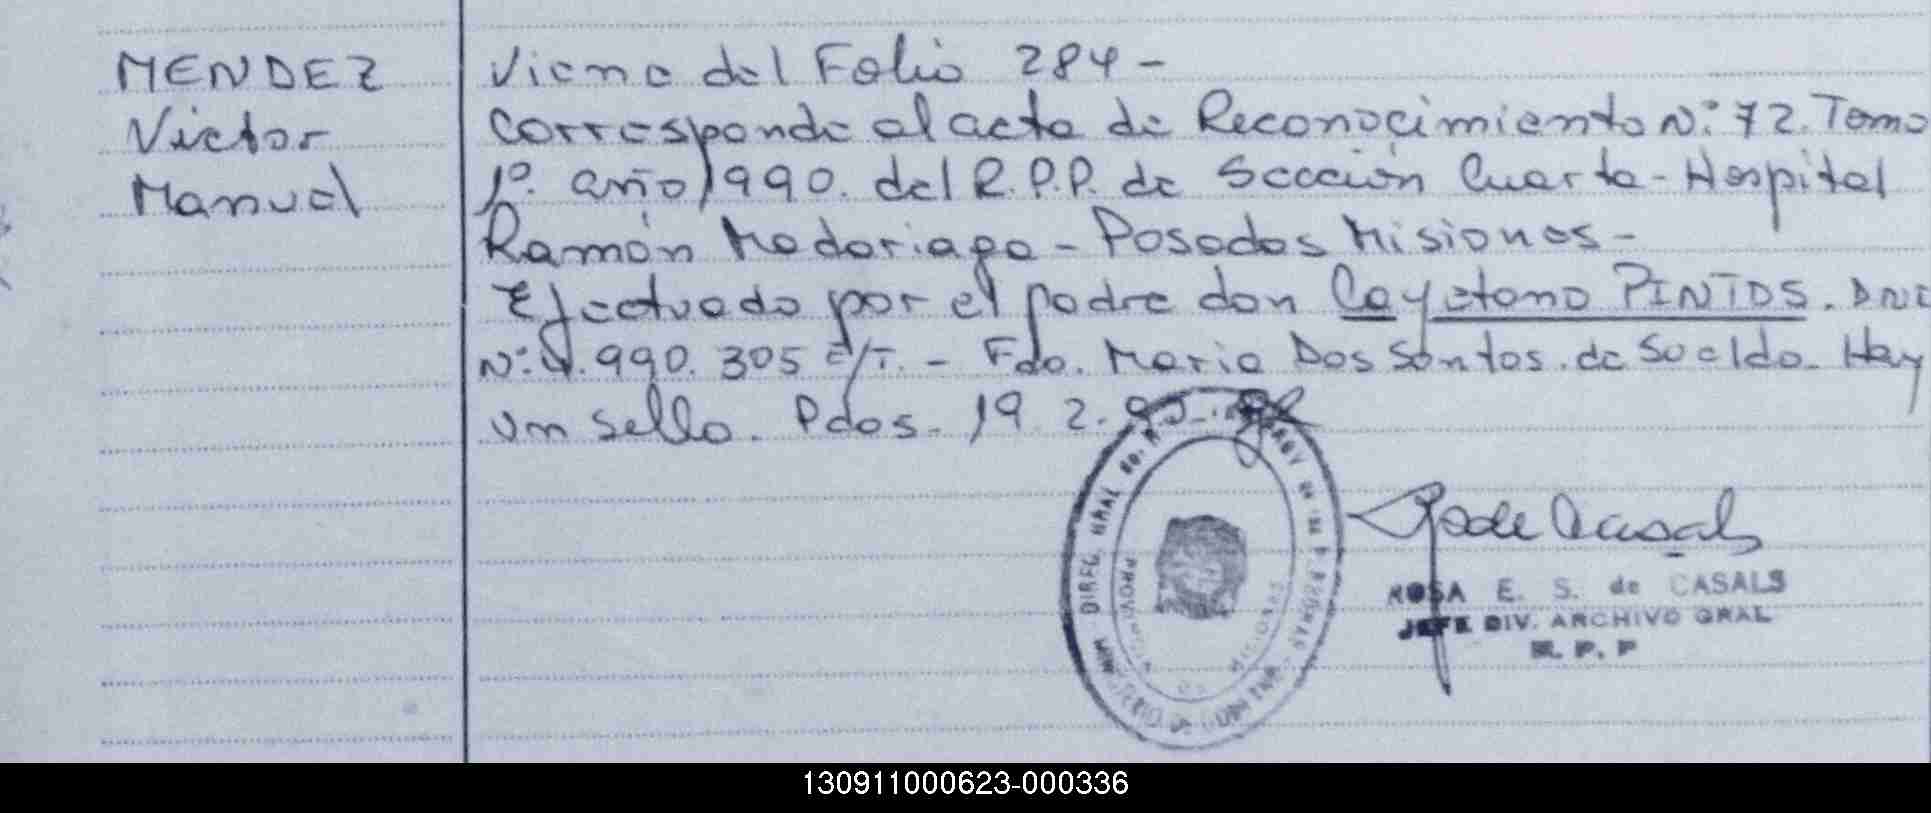 MENDEZ
Victor
Manuel
Viene del Folio 284 -
Corresponde al acta de Reconocimiento Nº: 72. Tomo
1º. año 1990. del R.P.P. de Sección Cuarta - Hospital
Ramón Madariaga - Posadas Misiones -
Efectuado por el padre don Cayetano PINTOS. DNI
Nº: .990.305 E/T. - Fdo. Maria Dos Santos. de Sueldo. Hay
un sello. Pdas. 19 2.
ROSA E. S. de CASALS
JEFE DIV. ARCHIVO GRAL
R. P. P
PROVINCIA DE MISIONES
130911000623-000336